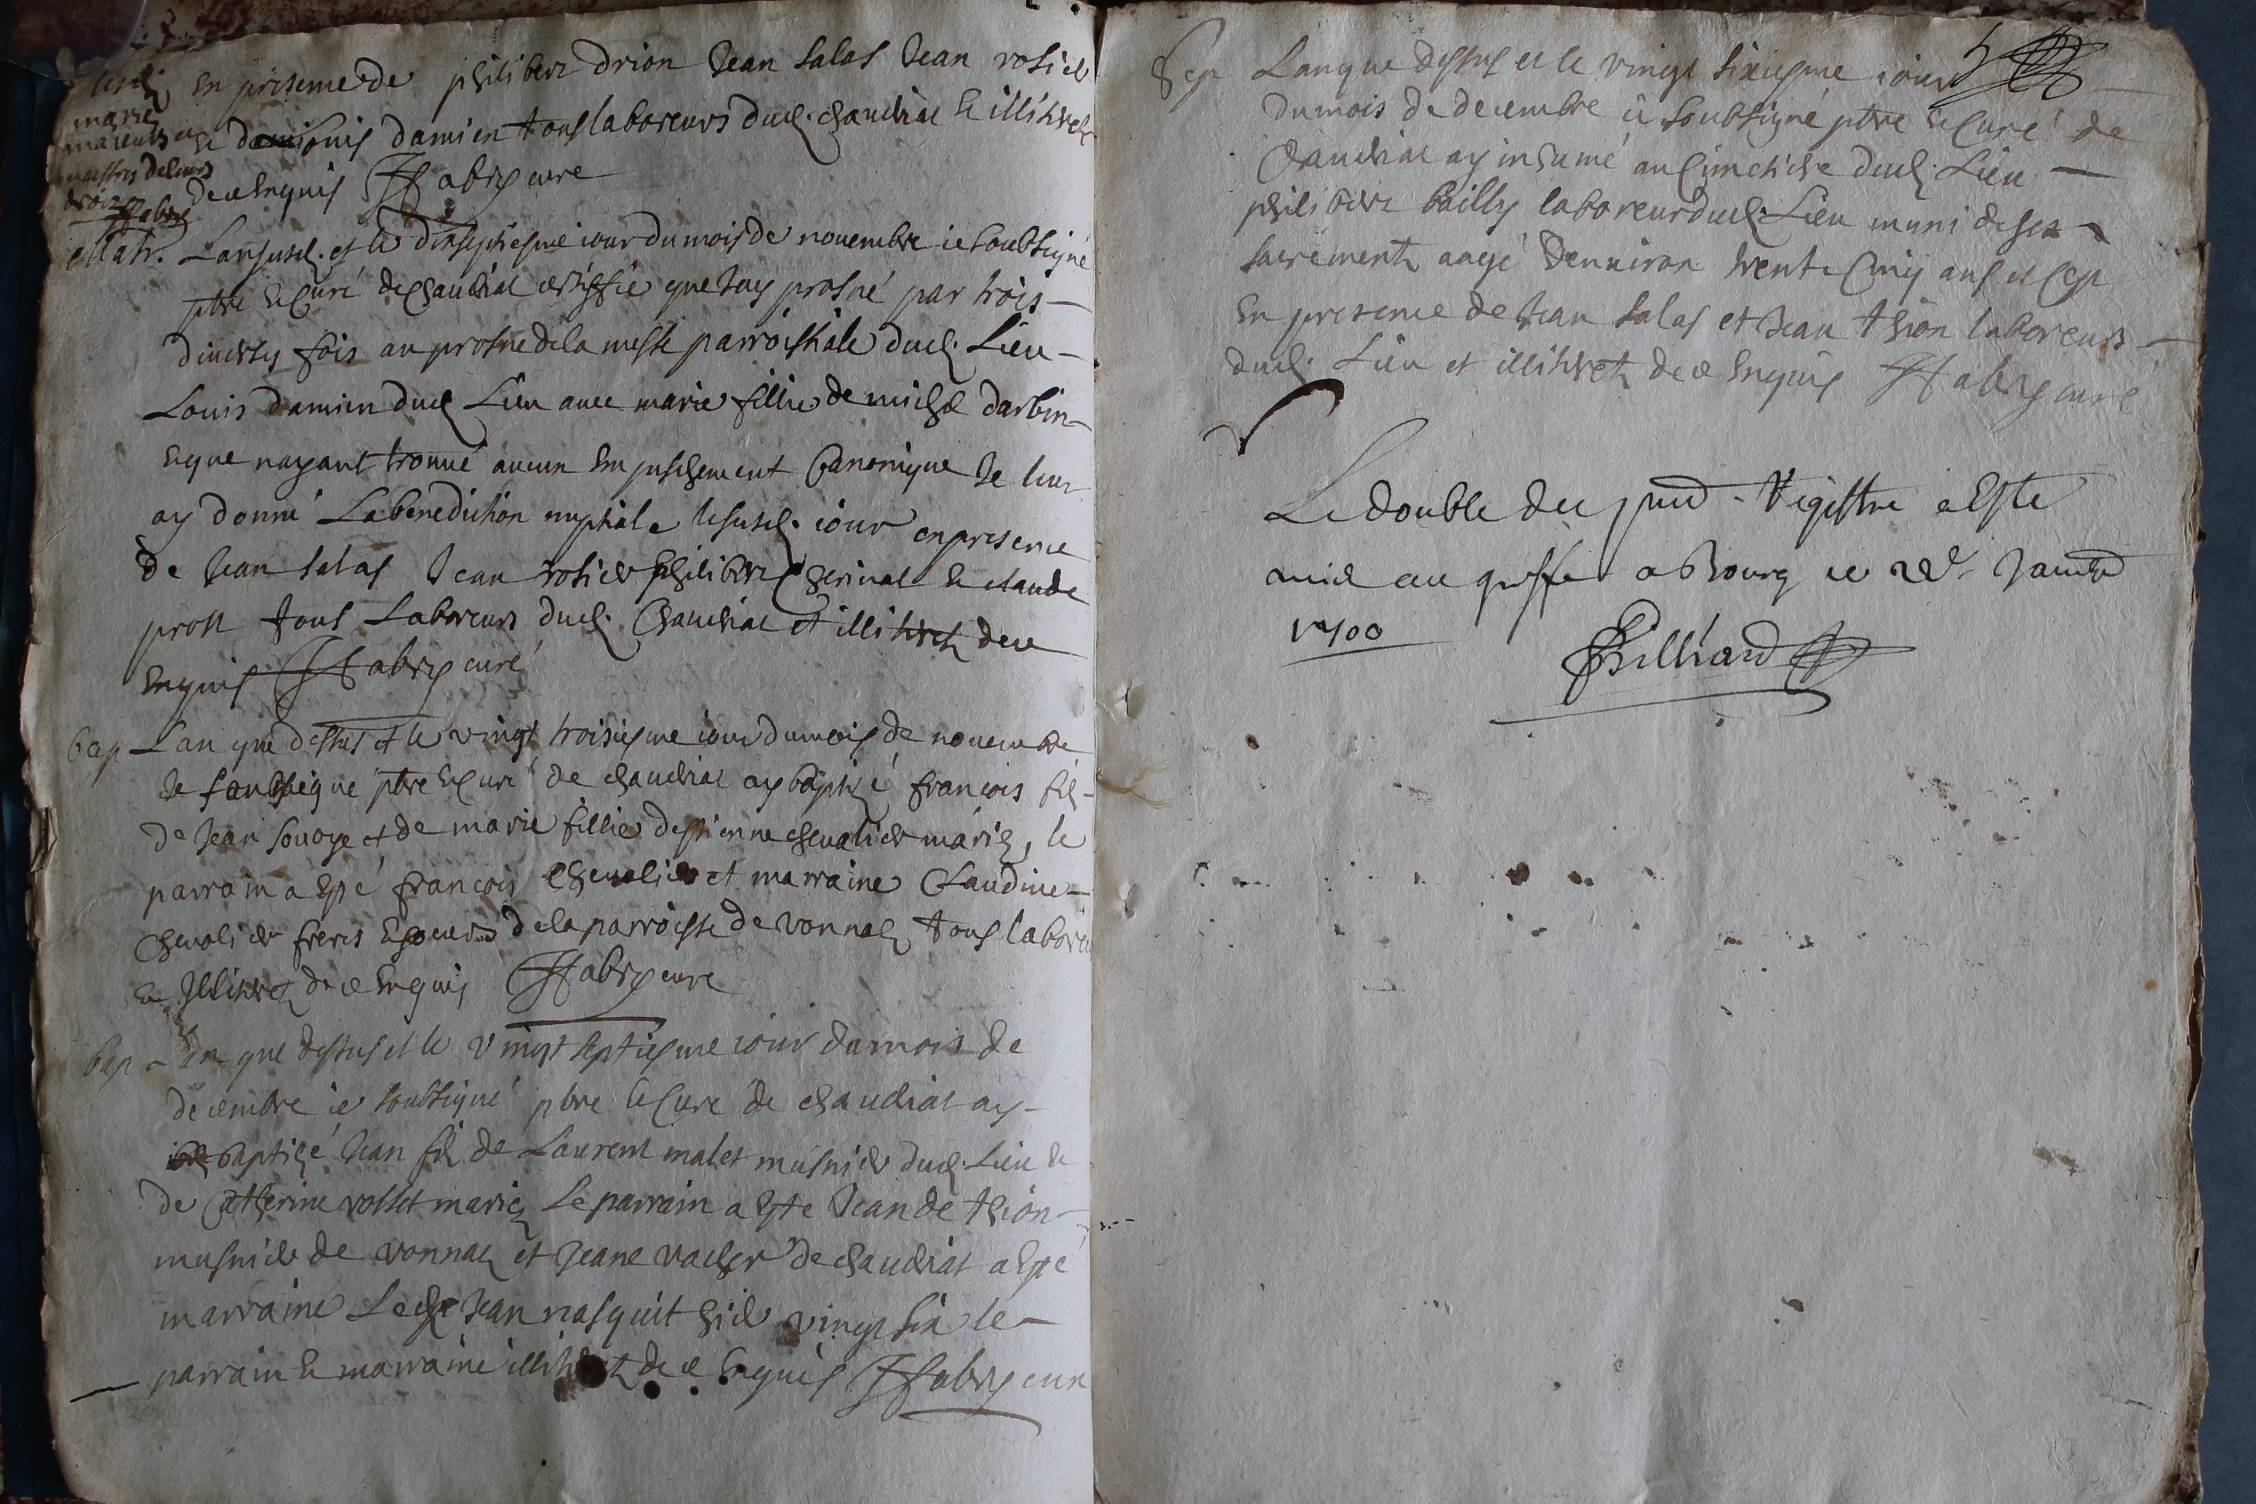 en presence de philibert drion Jean salas Jean rosier
marie
et de louis damien tous laboreurs dud. chaudiat et illitrés
de ce enquis H fabry curé
Matr. Lansusd. et le dixseptiesme iour du mois de novembre ie soubsigné
ptre et Curé de chaudiat certiffie que Jay prosné par trois
diverses fois au prosne de la messe parroissiale dud. Lieu
Louis damien dud Lieu avec marie fillie de michel darbin
et que nayant trouvé aucun empeschement Canonique Je leur
ay donné La benediction nuptiale le susd. iour en presence
de Jean salas Jean rosier philibert et claude
prost tous Laboreurs dud. Chaudiat et illitrés de ce
enquis H fabry curé
bap Lan que dessus et le vingt troisiesme iour du mois de novembre
Je soubsigné ptre et Curé de chaudiat ay baptizé francois fils
de Jean sovoye et de marie fillie destienne chevalier mariez, le
parrain a esté francois chevalier et marraine Claudine
chevalier freres et soeurs de la parroisse de vonnas tous labore
et Jllitrés de ce enquis H fabry curé
bap Lan que dessus et le vingt septiesme iour du mois de
decembre ie soubsigné ptre et Curé de chaudiat ay
baptizé Jean fils de Laurent malet musnier dud. Lieu et
de Catherine vollet mariez Le parrain a este Jean de thion
musnier de vonnas et Jeane vacher de chaudiat a esté
marraine Led. Jean nasquit hier vingt six le
parrain et marraine illitrés de ce enquis H fabry curé
Sep Lan que dessus et le vingt sixiesme iour
du mois de decembre ie soubsigné ptre et Curé de
Chaudiat ay inhumé au Cimetiere dud. Lieu
philibert bailly laboreur dud. Lieu muni de ses
sacrements aagé denviron trente Cinq ans et
en presence de Jean salas et Jean thion laboreurs
dud. Lieu et illitrés de ce enquis H fabry curé
Le double du pnt. Registre a Esté
mis au greffe a Bourg ce Janvier
1700
Billiard